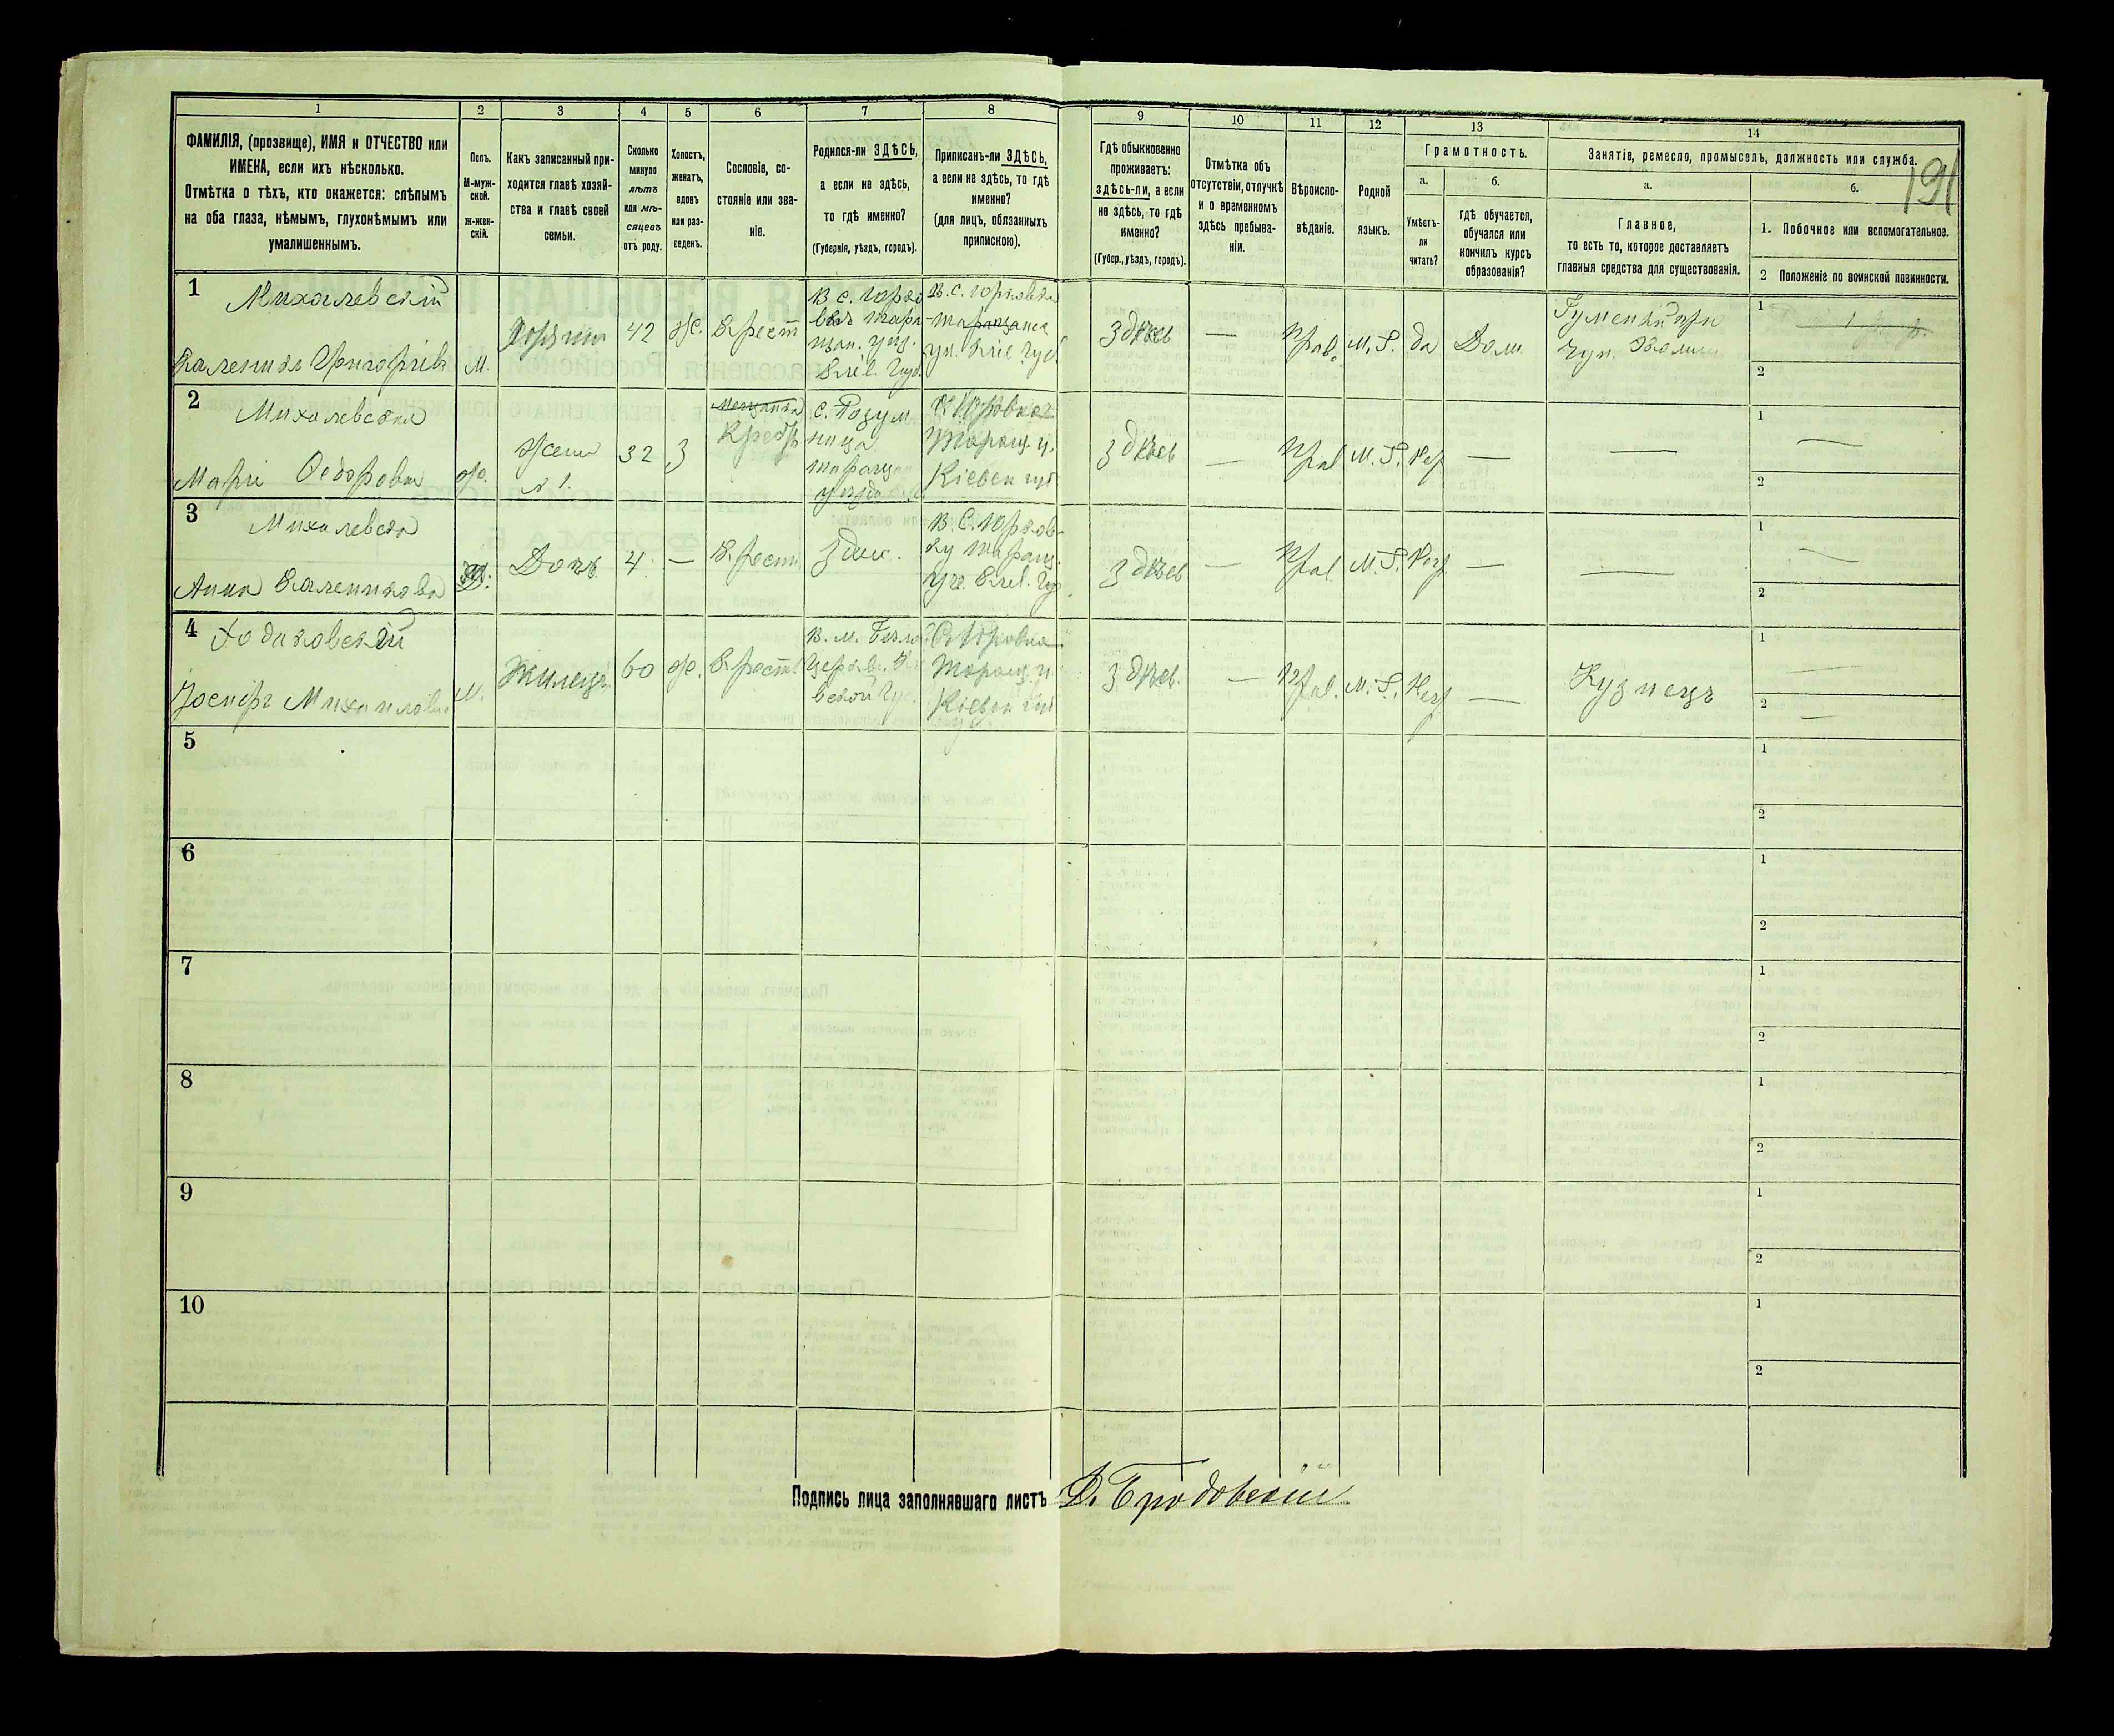 1
2
3
4
5
6
7
8
9
10
11
12
13
14
ФАМИЛІЯ, (прозвище), ИМЯ и ОТЧЕСТВО или
ИМЕНА, если ихъ нѣсколько.
Отмѣтка о тѣхъ, кто окажется: слѣпымъ
на оба глаза, нѣмымъ, глухонѣмымъ или
умалишеннымъ.
Полъ.
М-муж-
ской.
ж-жен-
скій.
Какъ записанный при-
ходится главѣ хозяй-
ства и главѣ своей
семьи.
Сколько
минуло
лѣтъ
или мѣ-
сяцевъ
отъ роду.
Холостъ,
женатъ,
вдовъ
или раз-
веденъ.
Сословіе, со-
стояніе или зва-
ніе.
Родился-ли ЗДѢСЬ,
а если не здѣсь,
то гдѣ именно?
(Губернія, уѣздъ, городъ).
Приписанъ-ли ЗДѢСЬ,
а если не здѣсь, то гдѣ
именно?
(для лицъ, обязанныхъ
припискою).
Гдѣ обыкновенно
проживаетъ:
здѣсь-ли, а если
не здѣсь, то гдѣ
именно?
(Губер., уѣздъ, городъ).
Отмѣтка объ
отсутствіи, отлучкѣ
и о временномъ
здѣсь пребыва-
ніи.
Вѣроиспо-
вѣданіе.
Родной
языкъ.
Грамотность.
а.
Умѣетъ-
ли
читать?
б.
гдѣ обучается,
обучался или
кончилъ курсъ
образованія?
Занятія, ремесло, промыселъ, должность или служба.
191
а.
Главное,
то есть то, которое доставляетъ
главныя средства для существованія.
б.
1. Побочное или вспомогательное.
2 Положеніе по воинской повинности.
1
Михалевскій
Каленикъ Григоріевъ
М.
42
Ж.
Крест
Кіев. Губ.
здѣсь
—
Прав.
М. Р.
да
Дом
1
2
2
Михалевская
Марія Федоровна
Ж.
Жена
№ 1.
32
З
Мещанка
Крест
Кіевск губ
здѣсь
—
Прав
М. Р.
Нет
—
—
1
—
2
3
Михалевска
Анна Каленикова
Дочь
4
—
Крест
здѣс.
здѣсь
—
Прав.
М. Р.
Нет
—
—
1
—
2
4
Ходаковскій
Іосифъ Михаиловъ
М.
Жилецъ
60
Ж.
Крест.
здѣсь.
—
Прав.
М. Р.
Нет
—
Кузнецъ
1
—
2
—
5
1
2
6
1
2
7
1
2
8
1
2
9
1
2
10
1
2
Подпись лица заполнявшаго листъ Д. Бродовскій